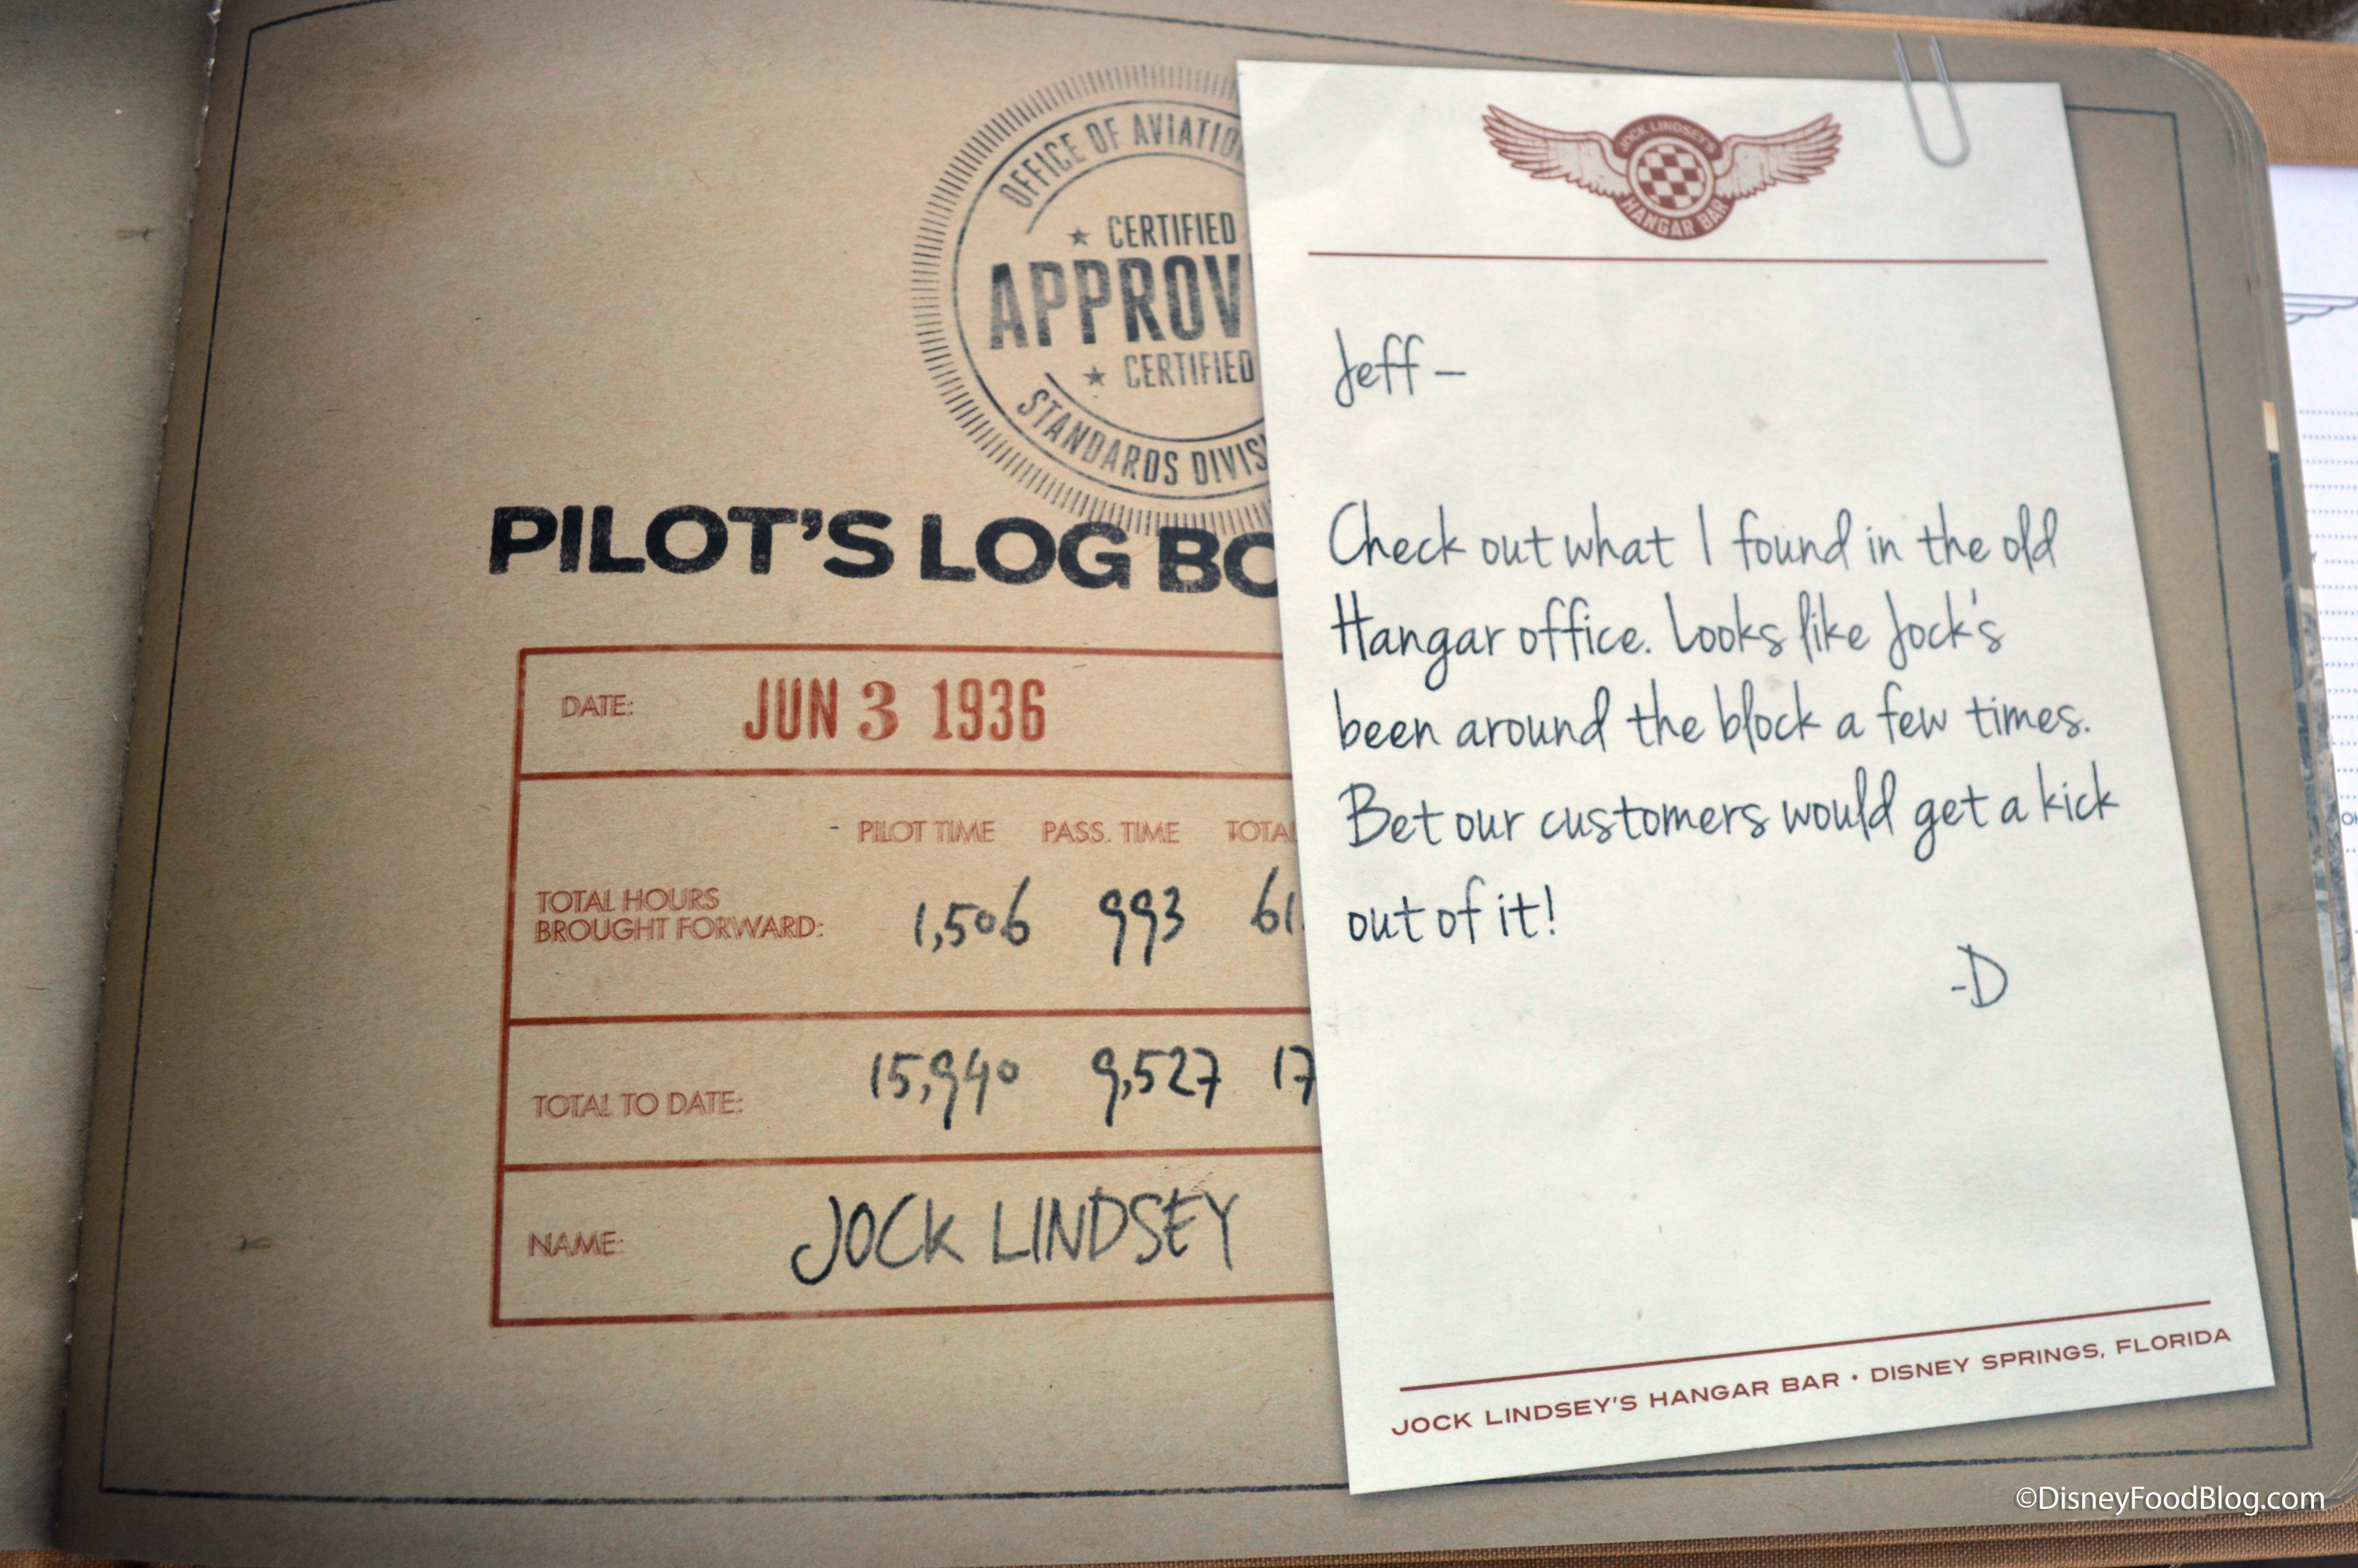 OFFICE OF AVIATION
CERTIFIED
APPROV
CERTIFIED
STANDARDS DIVIS
PILOT'S LOG BO
DATE: JUN 3 1936
PILOT TIME PASS. TIME TOTAL
TOTAL HOURS
BROUGHT FORWARD: 1,506 993 61
TOTAL TO DATE: 15,940 9,527 17
NAME: JOCK LINDSEY
JOCK LINDSEY'S
HANGAR BAR
Jeff –
Check out what I found in the old
Hangar office. Looks like Jock's
been around the block a few times.
Bet our customers would get a kick
out of it!
-D
JOCK LINDSEY'S HANGAR BAR • DISNEY SPRINGS, FLORIDA
©DisneyFoodBlog.com